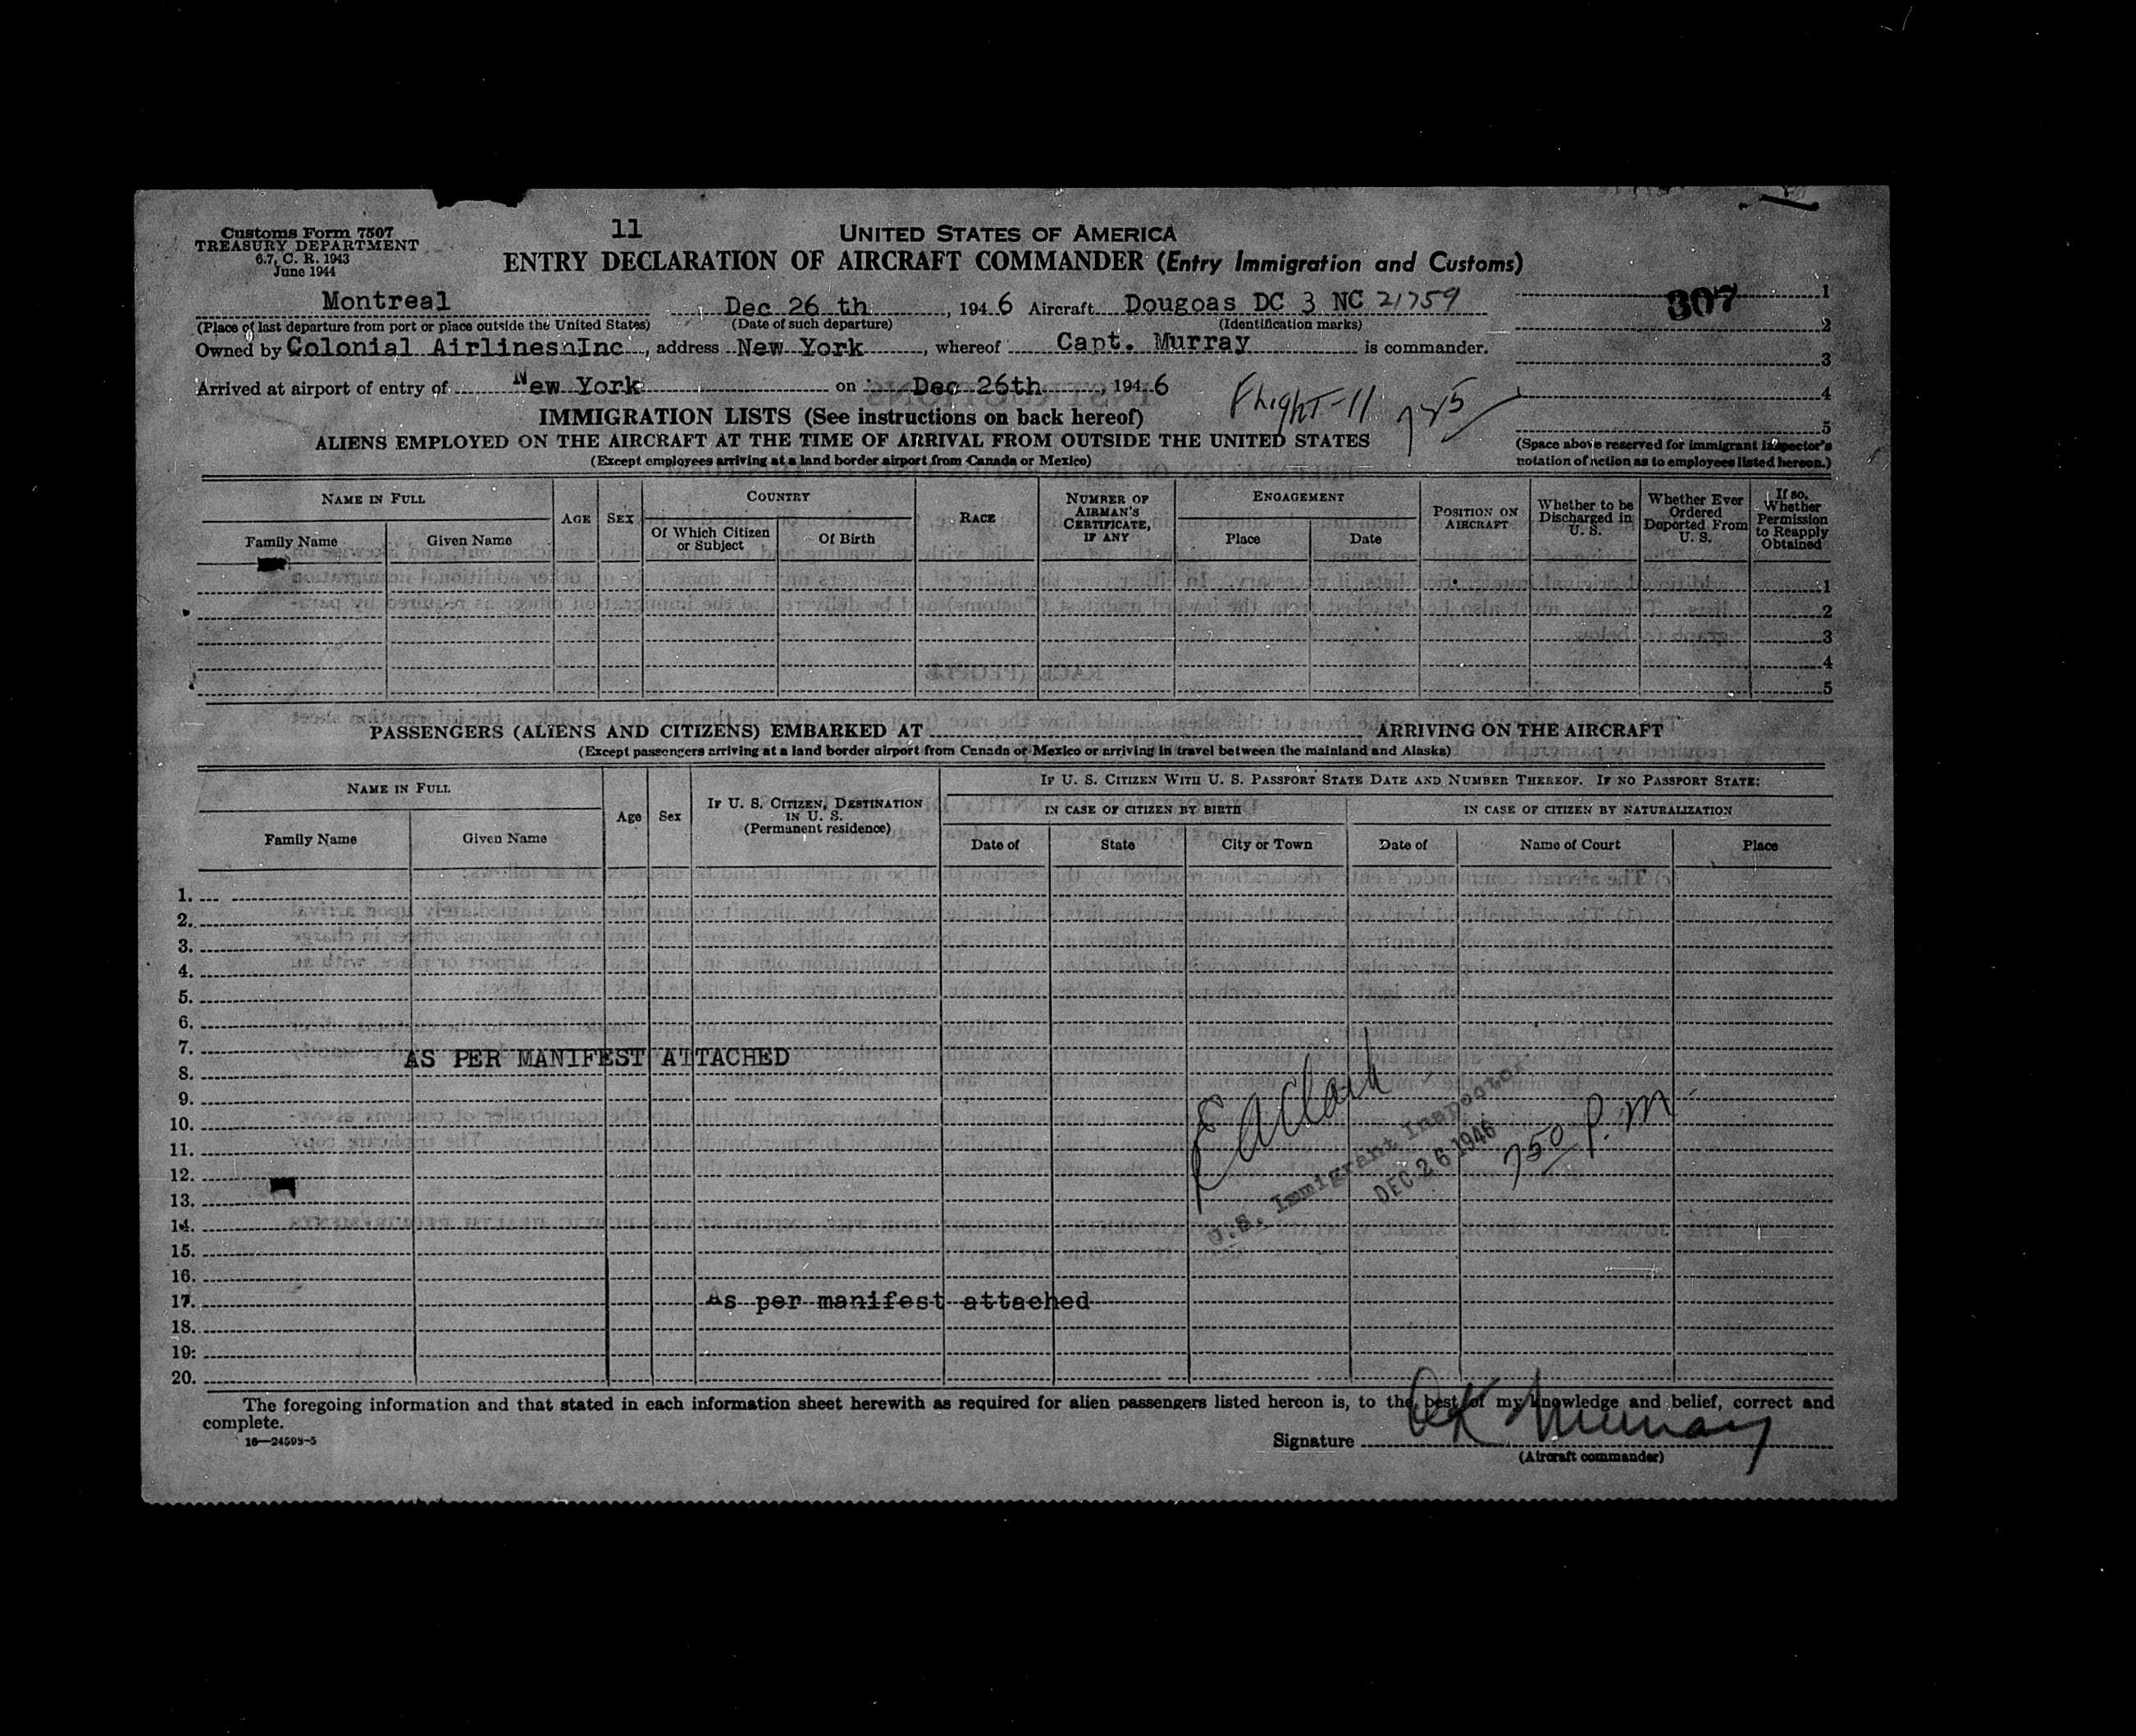 Customs Form 7507
TREASURY DEPARTMENT
6.7, C. R. 1943
June 1944
11
UNITED STATES OF AMERICA
ENTRY DECLARATION OF AIRCRAFT COMMANDER (Entry Immigration and Customs)
307
Montreal, Dec 26 th, 1946 Aircraft Dougoas DC 3 NC 21759
(Place of last departure from port or place outside the United States) (Date of such departure) (Identification marks)
Owned by Colonial AirlinesnInc, address New York, whereof Capt. Murray is commander.
Arrived at airport of entry of New York on Dec 26th, 1946
Flight-11 745
1
2
3
4
5
(Space above reserved for immigrant inspector's
notation of action as to employees listed hereon.)
IMMIGRATION LISTS (See instructions on back hereof)
ALIENS EMPLOYED ON THE AIRCRAFT AT THE TIME OF ARRIVAL FROM OUTSIDE THE UNITED STATES
(Except employees arriving at a land border airport from Canada or Mexico)
NAME IN FULL
Family Name Given Name
AGE
SEX
COUNTRY
Of Which Citizen or Subject
Of Birth
RACE
NUMBER OF AIRMAN'S CERTIFICATE, IF ANY
ENGAGEMENT
Place Date
POSITION ON AIRCRAFT
Whether to be Discharged in U. S.
Whether Ever Ordered Deported From U. S.
If so, Whether Permission to Reapply Obtained
1
2
3
4
5
PASSENGERS (ALIENS AND CITIZENS) EMBARKED AT ARRIVING ON THE AIRCRAFT
(Except passengers arriving at a land border airport from Canada or Mexico or arriving in travel between the mainland and Alaska)
NAME IN FULL
Family Name Given Name
Age
Sex
IF U. S. CITIZEN, DESTINATION IN U. S.
(Permanent residence)
IF U. S. CITIZEN WITH U. S. PASSPORT STATE DATE AND NUMBER THEREOF. IF NO PASSPORT STATE:
IN CASE OF CITIZEN BY BIRTH IN CASE OF CITIZEN BY NATURALIZATION
Date of State City or Town Date of Name of Court Place
1.
2.
3.
4.
5.
6.
7.
AS PER MANIFEST ATTACHED
8.
9.
10.
11.
12.
13.
14.
15.
16.
17. As per manifest attached
18.
19.
20.
U.S. Immigrant Inspector
DEC 26 1946
750 P.M
The foregoing information and that stated in each information sheet herewith as required for alien passengers listed hereon is, to the best of my knowledge and belief, correct and
complete.
16—24598-5
Signature Murray
(Aircraft commander)